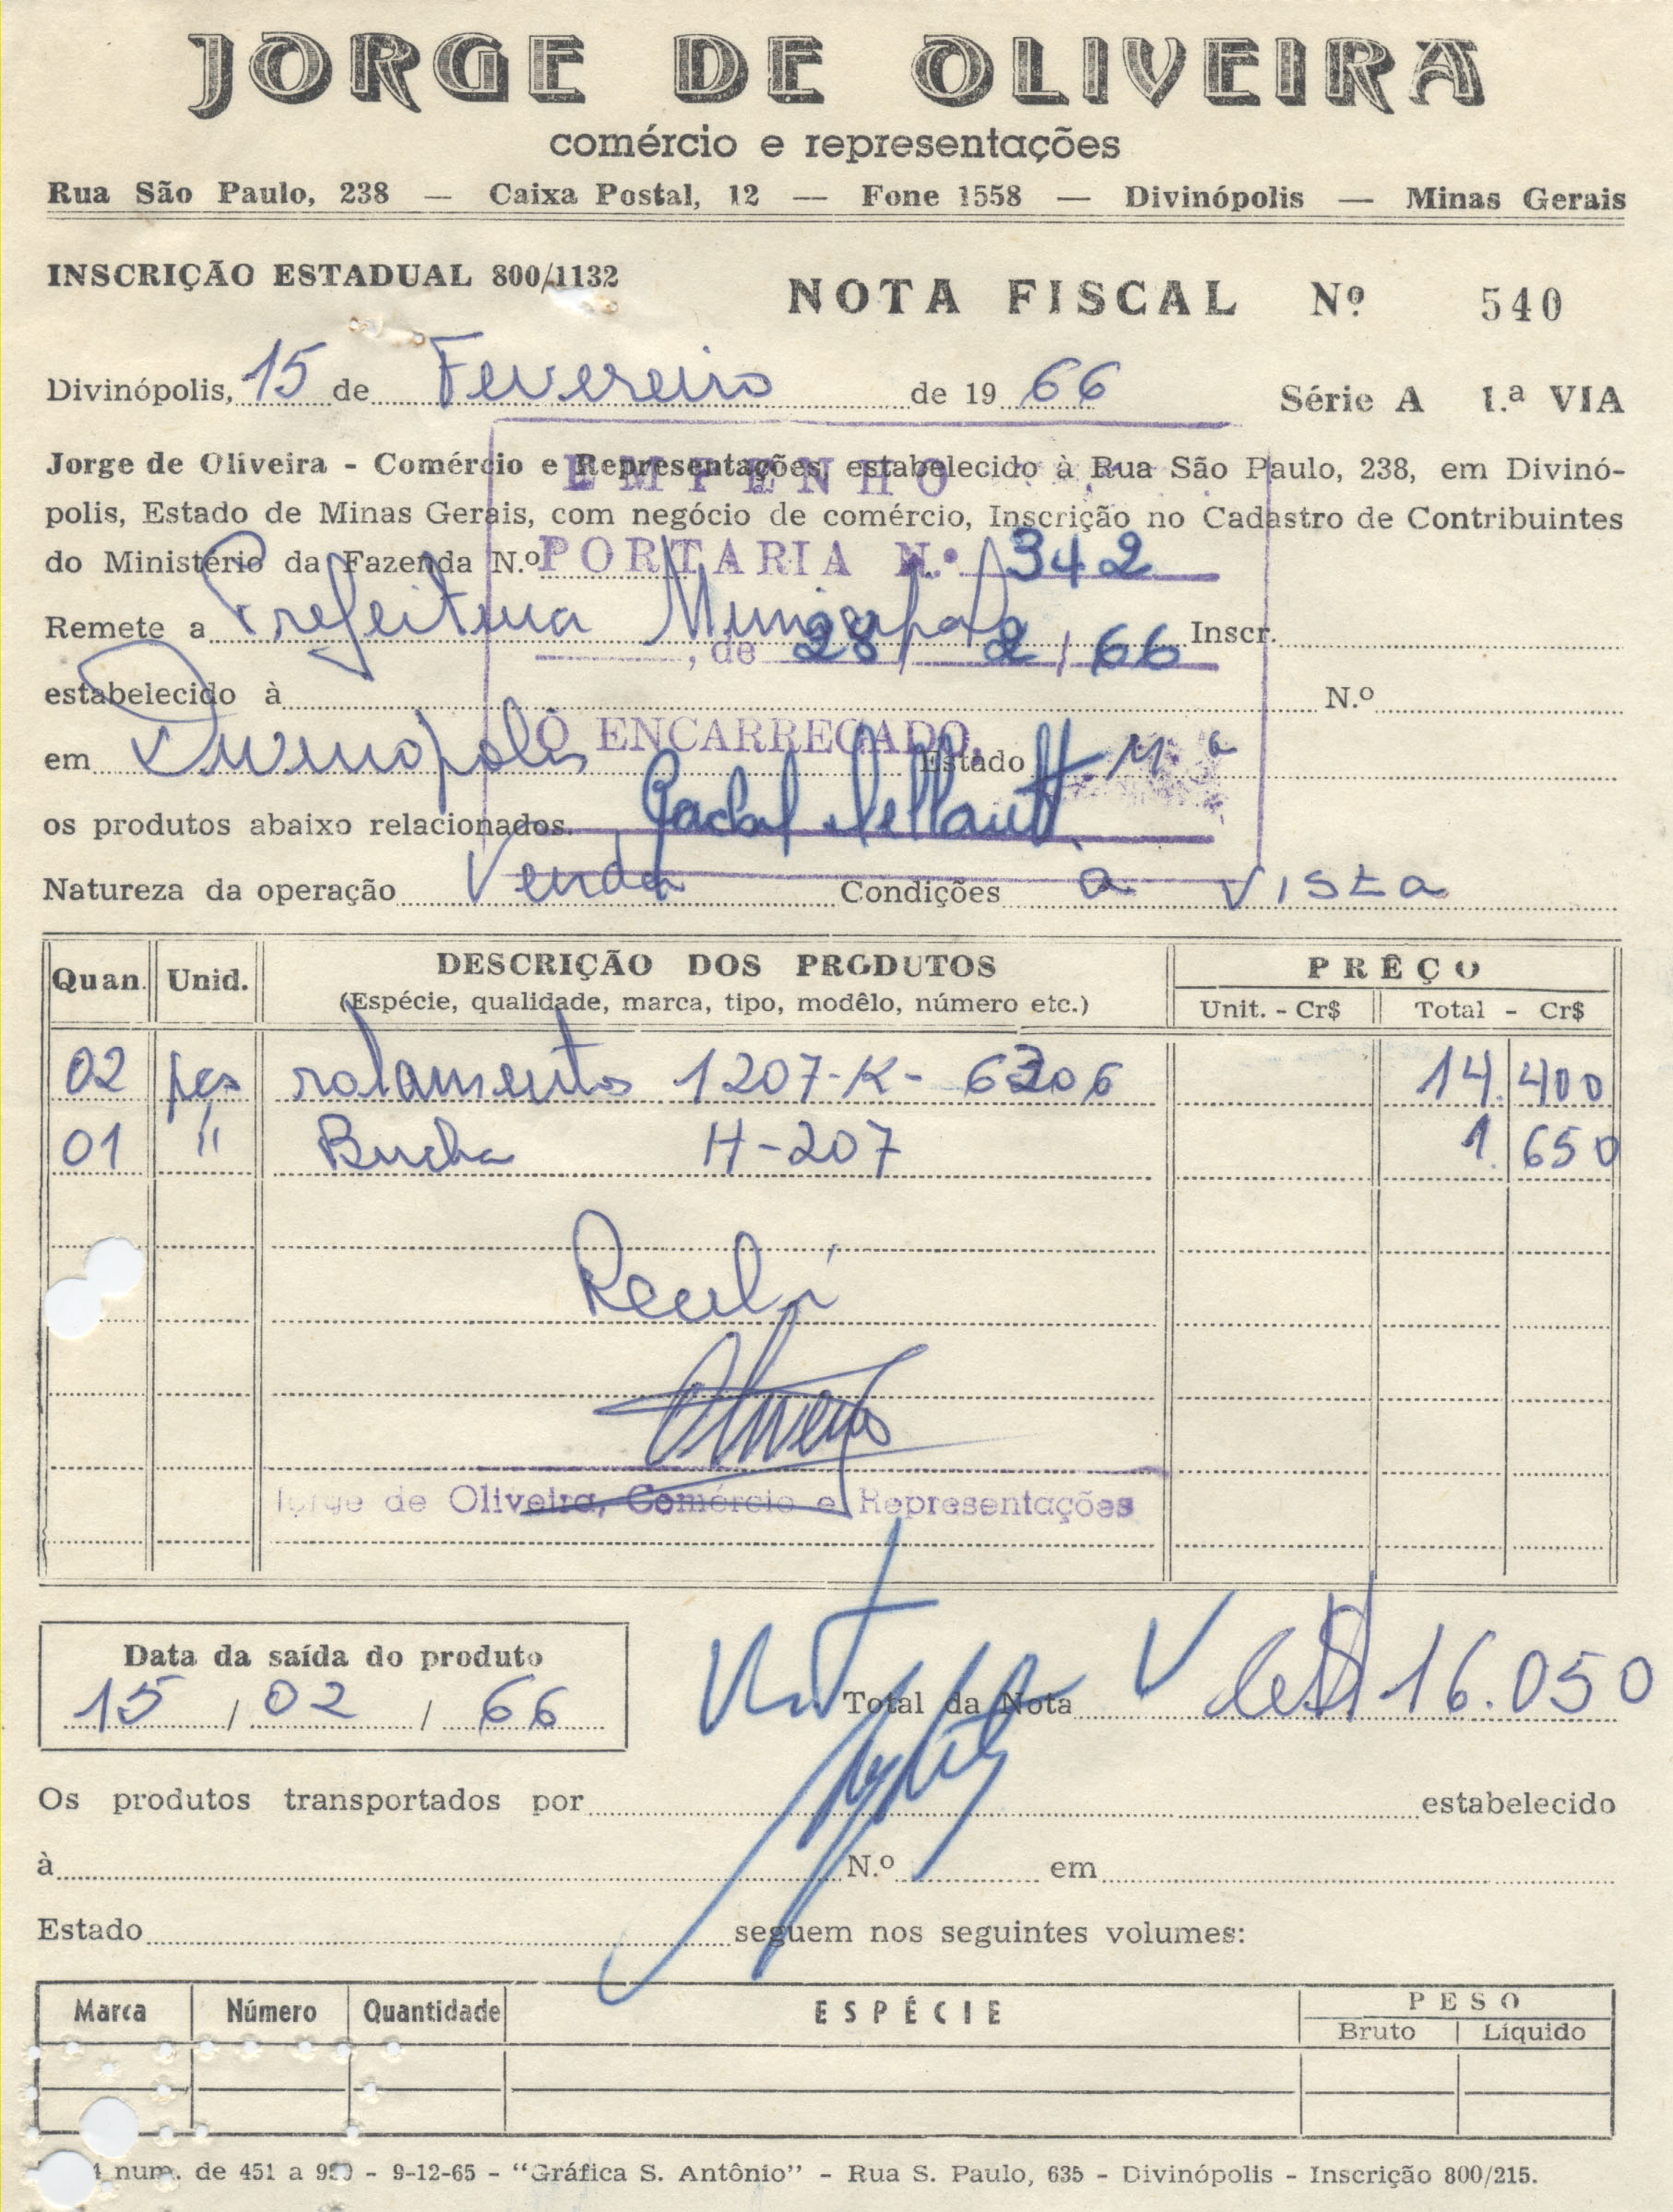 JORGE DE OLIVEIRA
comércio e representações
Rua São Paulo, 238 — Caixa Postal, 12 — Fone 1558 — Divinópolis — Minas Gerais
INSCRIÇÃO ESTADUAL 800/1132
NOTA FISCAL Nº 540
Divinópolis, 15 de Fevereiro de 1966
Série A 1.ª VIA
Jorge de Oliveira - Comércio e Representações, estabelecido à Rua São Paulo, 238, em Divinó-
polis, Estado de Minas Gerais, com negócio de comércio, Inscrição no Cadastro de Contribuintes
do Ministério da Fazenda N.º
EMPENHO
PORTARIA N.º 342
Remete a Prefeitura Municipal Inscr.
, de 28 / 2 / 66
estabelecido à N.º
O ENCARREGADO,
em Divinópolis Estado
os produtos abaixo relacionados.
Natureza da operação Venda Condições à vista
Quan. Unid. DESCRIÇÃO DOS PRODUTOS PRÊÇO
(Espécie, qualidade, marca, tipo, modêlo, número etc.) Unit. - Cr$ Total - Cr$
02 pçs rolamentos 1207-K- 6306 14.400
01 " Bucha H-207 1.650
Recebi
Jorge de Oliveira, Comércio e Representações
Data da saída do produto
15 / 02 / 66
Total da Nota Cr$ 16.050
Os produtos transportados por estabelecido
à N.º em
Estado seguem nos seguintes volumes:
Marca Número Quantidade ESPÉCIE PESO
Bruto Líquido
num. de 451 a - 9-12-65 - “Gráfica S. Antônio” - Rua S. Paulo, 635 - Divinópolis - Inscrição 800/215.